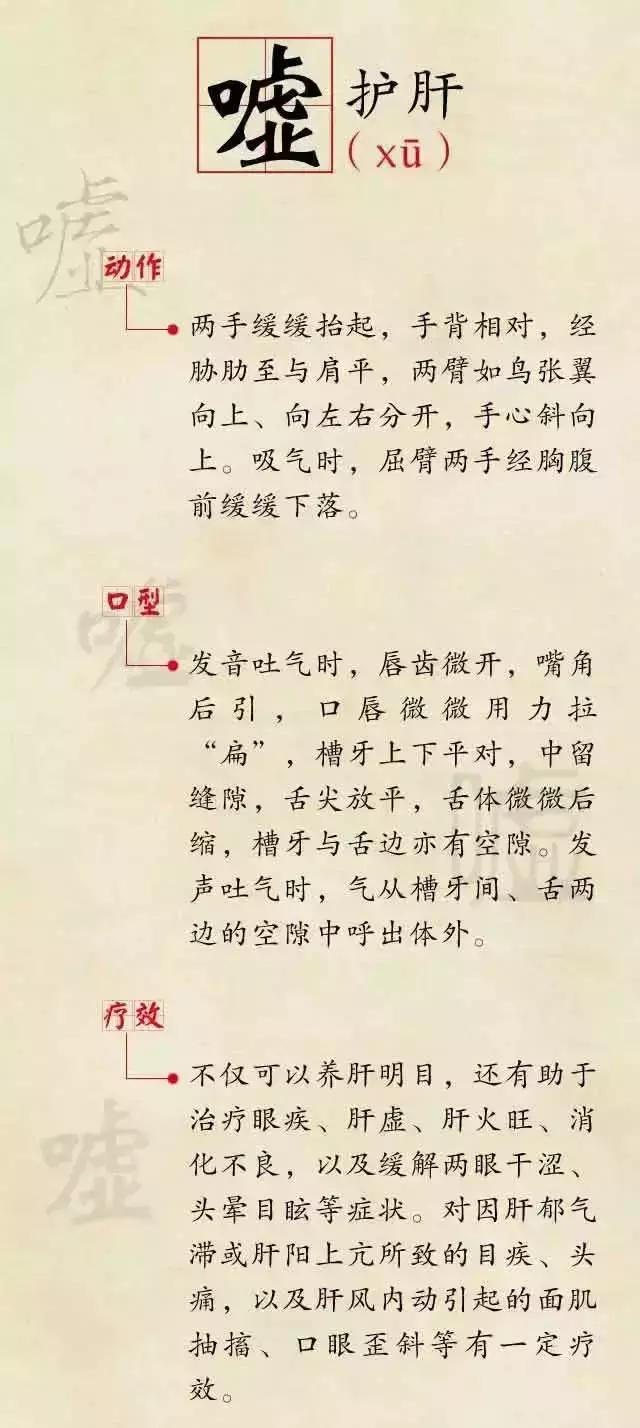 嘘 护肝
（xū）
嘘
动作
两手缓缓抬起，手背相对，经
胁肋至与肩平，两臂如鸟张翼
向上、向左右分开，手心斜向
上。吸气时，屈臂两手经胸腹
前缓缓下落。
口型
嘘
发音吐气时，唇齿微开，嘴角
后引，口唇微微用力拉
“扁”，槽牙上下平对，中留
缝隙，舌尖放平，舌体微微后
缩，槽牙与舌边亦有空隙。发
声吐气时，气从槽牙间、舌两
边的空隙中呼出体外。
嘘
疗效
不仅可以养肝明目，还有助于
治疗眼疾、肝虚、肝火旺、消
化不良，以及缓解两眼干涩、
头晕目眩等症状。对因肝郁气
滞或肝阳上亢所致的目疾、头
痛，以及肝风内动引起的面肌
抽搐、口眼歪斜等有一定疗
效。
嘘